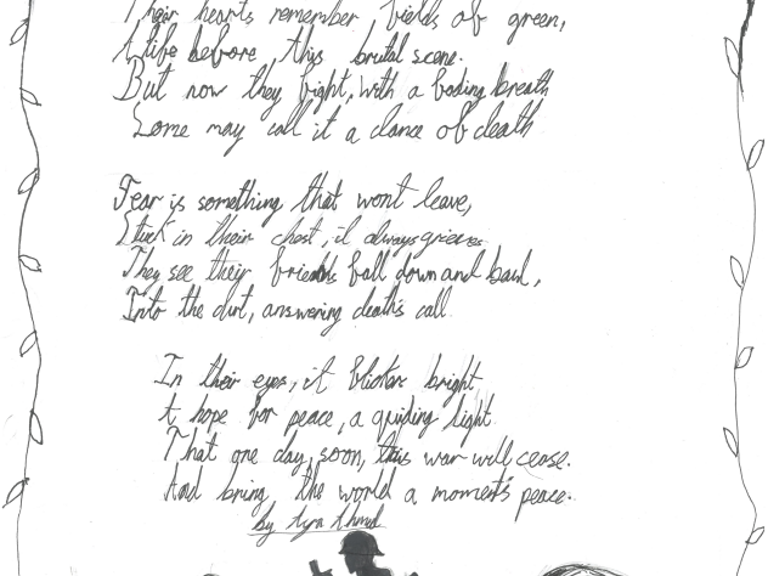 Their hearts remember fields of green,
A life before this brutal scene.
But now they fight, with a fading breath
Some may call it a dance of death
Fear is something that wont leave,
Stuck in their chest, it always grieves
They see their friends fall down and bawl,
Into the dirt, answering death's call
In their eyes, it flickers bright
A hope for peace, a guiding light
That one day, soon, this war will cease.
And bring, the world a moment's peace.
by